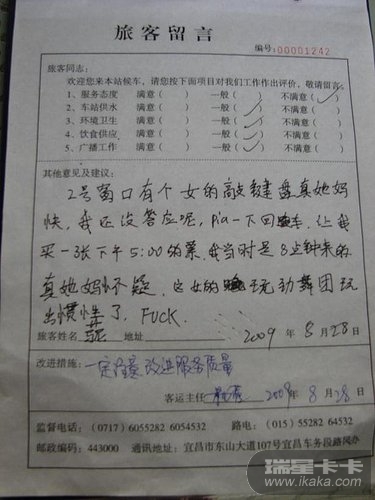 旅客留言
编号:00001242
旅客同志:
欢迎您来本站候车,请您按下面项目对我们工作作出评价,敬请留言:
1、服务态度 满意( ) 一般( ) 不满意(✓)
2、车站供水 满意( ) 一般(✓) 不满意( )
3、环境卫生 满意( ) 一般(✓) 不满意( )
4、饮食供应 满意( ) 一般(✓) 不满意( )
5、广播工作 满意( ) 一般(✓) 不满意( )
其他意见及建议:
2号窗口有个女的敲键盘真她妈
快,我还没答应呢,Pia一下回车,让我
买一张下午5:00的票,我当时是8点钟来的
真她妈怀疑,这女的玩动舞团玩
出惯性了,FUCK.
旅客姓名 地址 2009年8月28日
改进措施:一定注意改进服务质量
客运主任 2009年8月28日
监督电话:(0717)6055282 6054532 路电:(015)55282 64532
邮政编码:443000 通讯地址:宜昌市东山大道107号宜昌车务段路风办
瑞星卡卡
www.ikaka.com